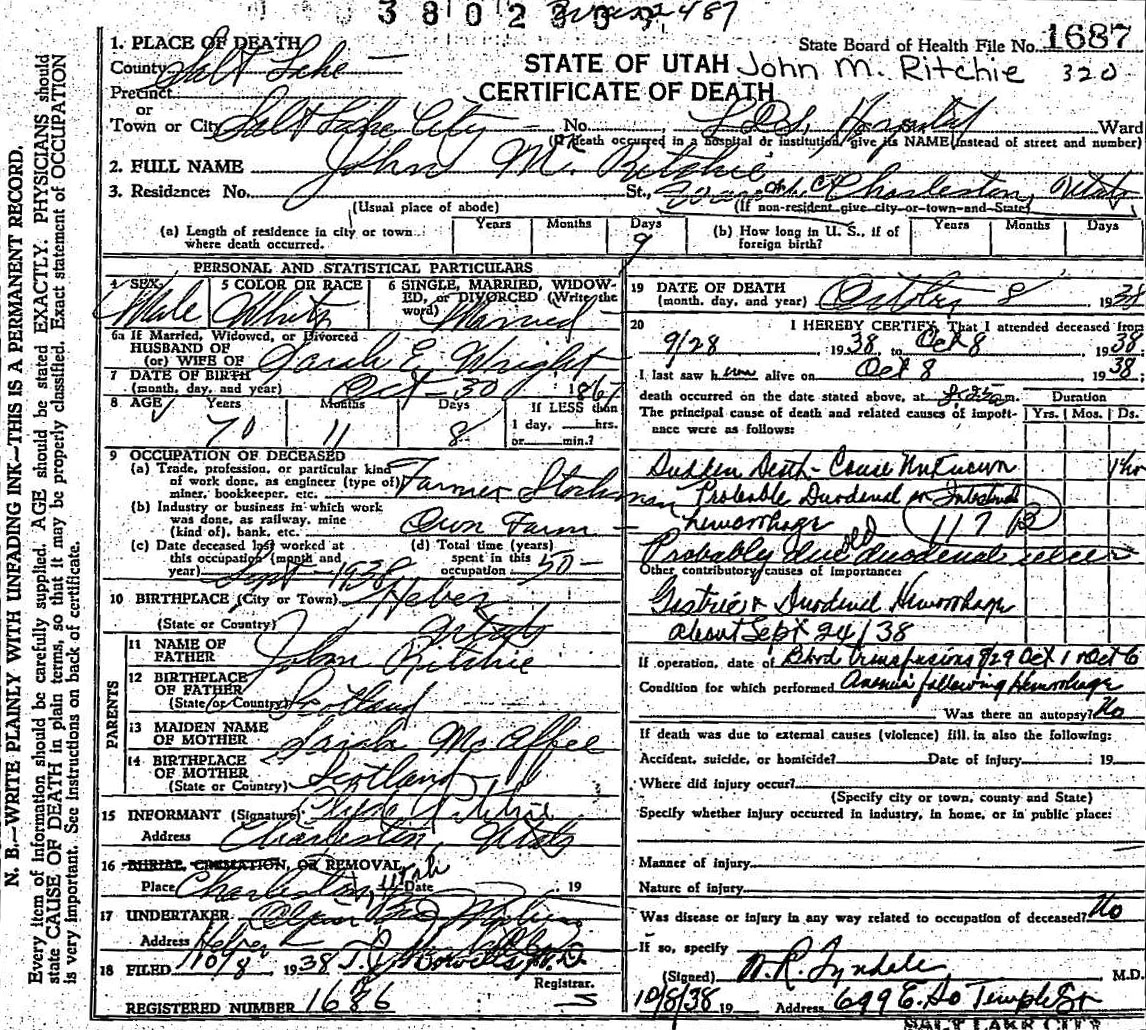 380230
2487
1. PLACE OF DEATH
State Board of Health File No. 1687
County Salt Lake
STATE OF UTAH John M. Ritchie 320
Precinct
CERTIFICATE OF DEATH
or
Town or City Salt Lake City No. L.D.S. Hospital Ward
(If death occurred in a hospital or institution, give its NAME instead of street and number)
2. FULL NAME John M. Ritchie
3. Residence: No. St., Charleston, Utah
(Usual place of abode) (If non-resident give city or town and State)
(a) Length of residence in city or town where death occurred. Years Months Days 9
(b) How long in U. S., if of foreign birth? Years Months Days
PERSONAL AND STATISTICAL PARTICULARS
4 SEX Male
5 COLOR OR RACE White
6 SINGLE, MARRIED, WIDOWED, or DIVORCED (Write the word) Married
6a If Married, Widowed, or Divorced
HUSBAND OF
(or) WIFE OF Sarah E. Wright
7 DATE OF BIRTH
(month, day, and year) Oct - 30 1867
8 AGE Years 70 Months 11 Days 8 If LESS than 1 day, hrs. or min.?
9 OCCUPATION OF DECEASED
(a) Trade, profession, or particular kind of work done, as engineer (type of) miner, bookkeeper, etc. Farmer Stockman
(b) Industry or business in which work was done, as railway, mine (kind of), bank, etc. Own Farm
(c) Date deceased last worked at this occupation (month and year) Sept - 1938
(d) Total time (years) spent in this occupation 50
10 BIRTHPLACE (City or Town) Heber
(State or Country) Utah
PARENTS
11 NAME OF FATHER John Ritchie
12 BIRTHPLACE OF FATHER
(State or Country) Scotland
13 MAIDEN NAME OF MOTHER Sarah McAffee
14 BIRTHPLACE OF MOTHER
(State or Country) Scotland
15 INFORMANT (Signature) Ritchie
Address Charleston Utah
16 BURIAL, CREMATION, OR REMOVAL
Place Charleston, Utah Date 19
17 UNDERTAKER
Address Heber
18 FILED 10/8 1938 M.D.
Registrar.
REGISTERED NUMBER 1686
19 DATE OF DEATH
(month, day, and year) October 8 1938
20 I HEREBY CERTIFY, That I attended deceased from
9/28 1938 to Oct 8 1938
I last saw him alive on Oct 8 1938
death occurred on the date stated above, at m.
Duration
The principal cause of death and related causes of importance were as follows: Yrs. Mos. Ds.
Sudden Death - Cause Unknown 1 hr
Probable Duodenal or Intestinal
hemorrhage 117 B
Probably due old duodenal ulcer
Other contributory causes of importance:
Gastric & Duodenal Hemorrhage
About Sept 24/38
If operation, date of Blood transfusions 9/29 Oct 1 Oct 6
Condition for which performed Anemia following Hemorrhage
Was there an autopsy? No
If death was due to external causes (violence) fill in also the following:
Accident, suicide, or homicide? Date of injury 19
Where did injury occur?
(Specify city or town, county and State)
Specify whether injury occurred in industry, in home, or in public place:
Manner of injury
Nature of injury
Was disease or injury in any way related to occupation of deceased? No
If so, specify
(Signed) W. R. Tyndale M.D.
10/8/38 19 Address 699 E. So Temple St
SALT LAKE CITY
N. B.—WRITE PLAINLY WITH UNFADING INK—THIS IS A PERMANENT RECORD.
Every item of information should be carefully supplied. AGE should be stated EXACTLY. PHYSICIANS should
state CAUSE OF DEATH in plain terms, so that it may be properly classified. Exact statement of OCCUPATION
is very important. See instructions on back of certificate.